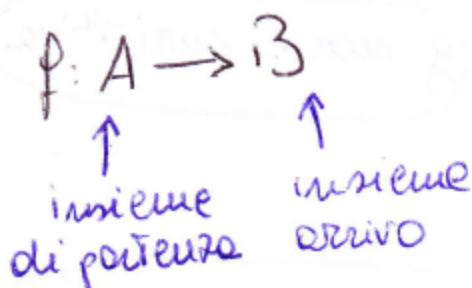 f: A → B
insieme di partenza
insieme arrivo